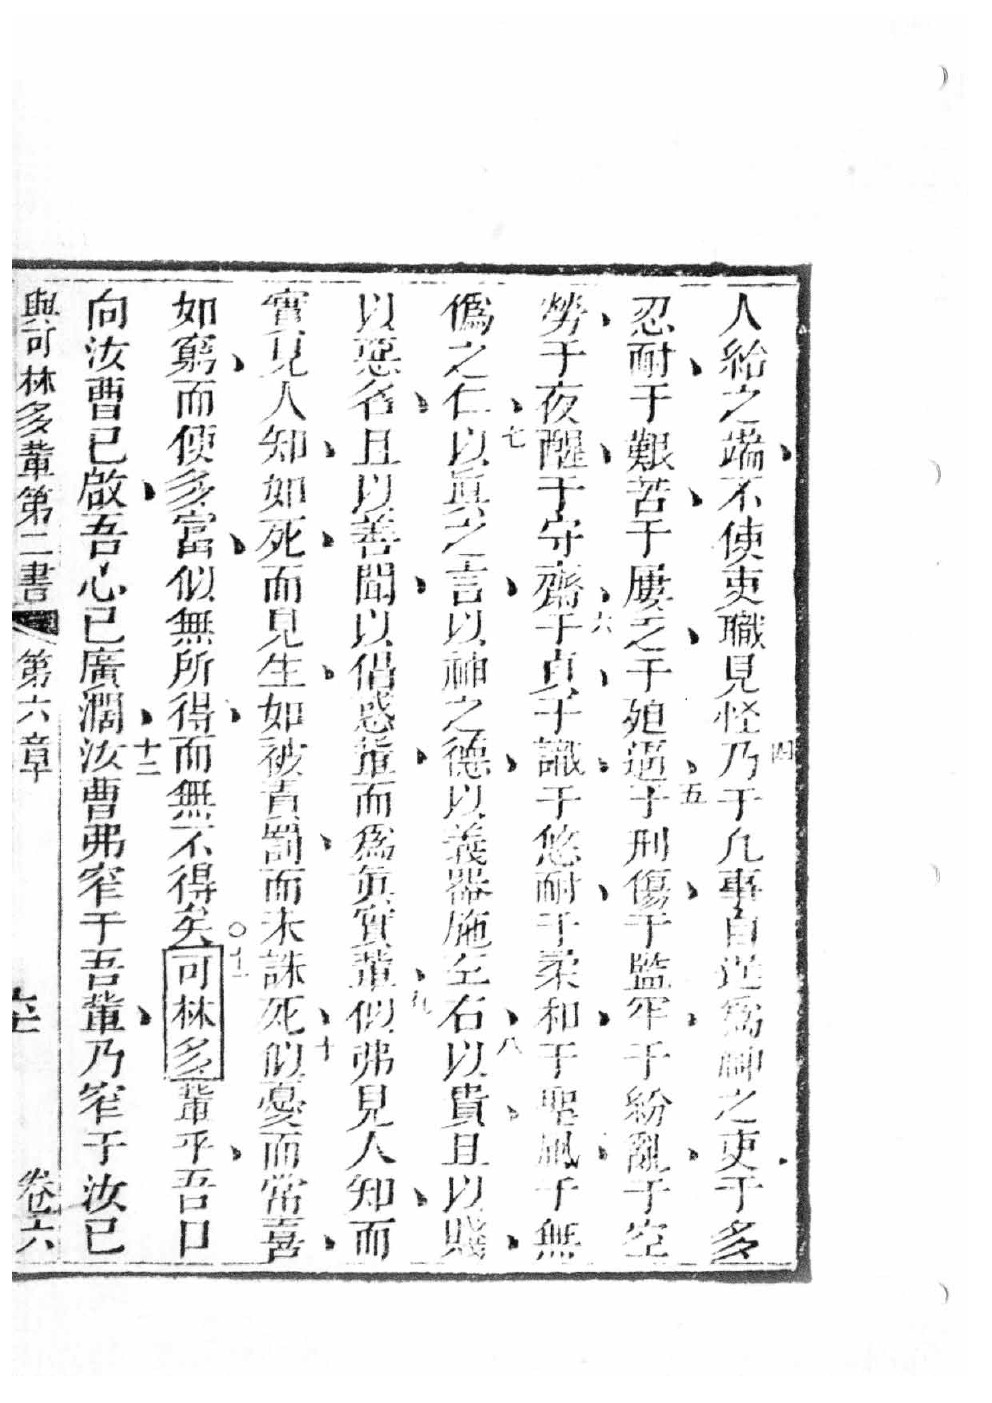 人給之端不使吏職見怪乃四于凡事自逞為神之吏于多
忍耐于艱苦于屢乏于廹逼五于刑傷于監牢于紛亂于空
勞于夜醒于守齋六于貞于識于悠耐于柔和于聖風于無
僞之仁七以眞之言以神之德以義器施左右八以貴且以賤
以惡名且以善聞以倡惑軰而爲眞實軰九似弗見人知而
實見人知如死而見生如被責罰而未誅死十似憂而常喜
如窮而使多富似無所得而無不得矣○十一可林多軰乎吾口
向汝曹已啟吾心已廣濶十二汝曹弗窄于吾軰乃窄于汝已
與可林多軰第二書 第六章 卷六